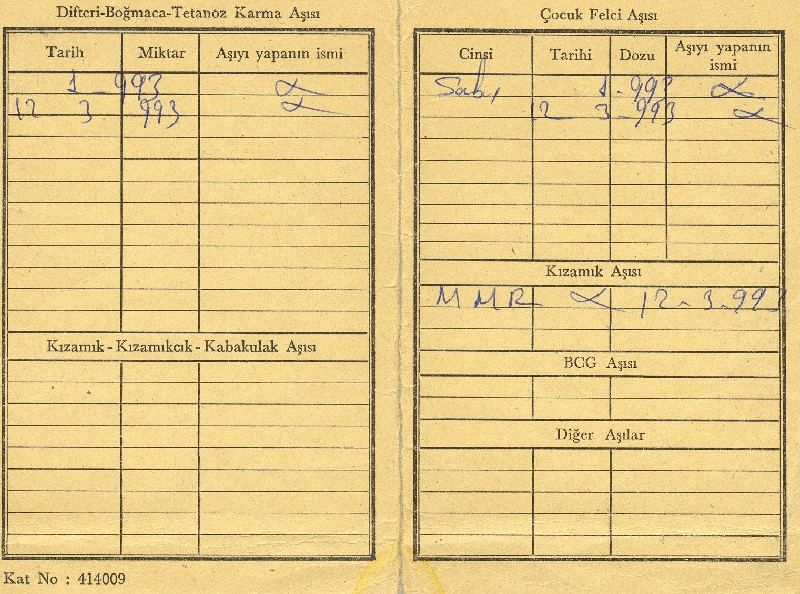 Difteri-Boğmaca-Tetanoz Karma Aşısı
Tarih Miktar Aşıyı yapanın ismi
1 - 993
12 3 993
Kızamık - Kızamıkcık - Kabakulak Aşısı
Kat No : 414009
Çocuk Felci Aşısı
Cinsi Tarihi Dozu Aşıyı yapanın ismi
1 - 993
12 3 - 993
Kızamık Aşısı
MMR 12 - 3 - 993
BCG Aşısı
Diğer Aşılar